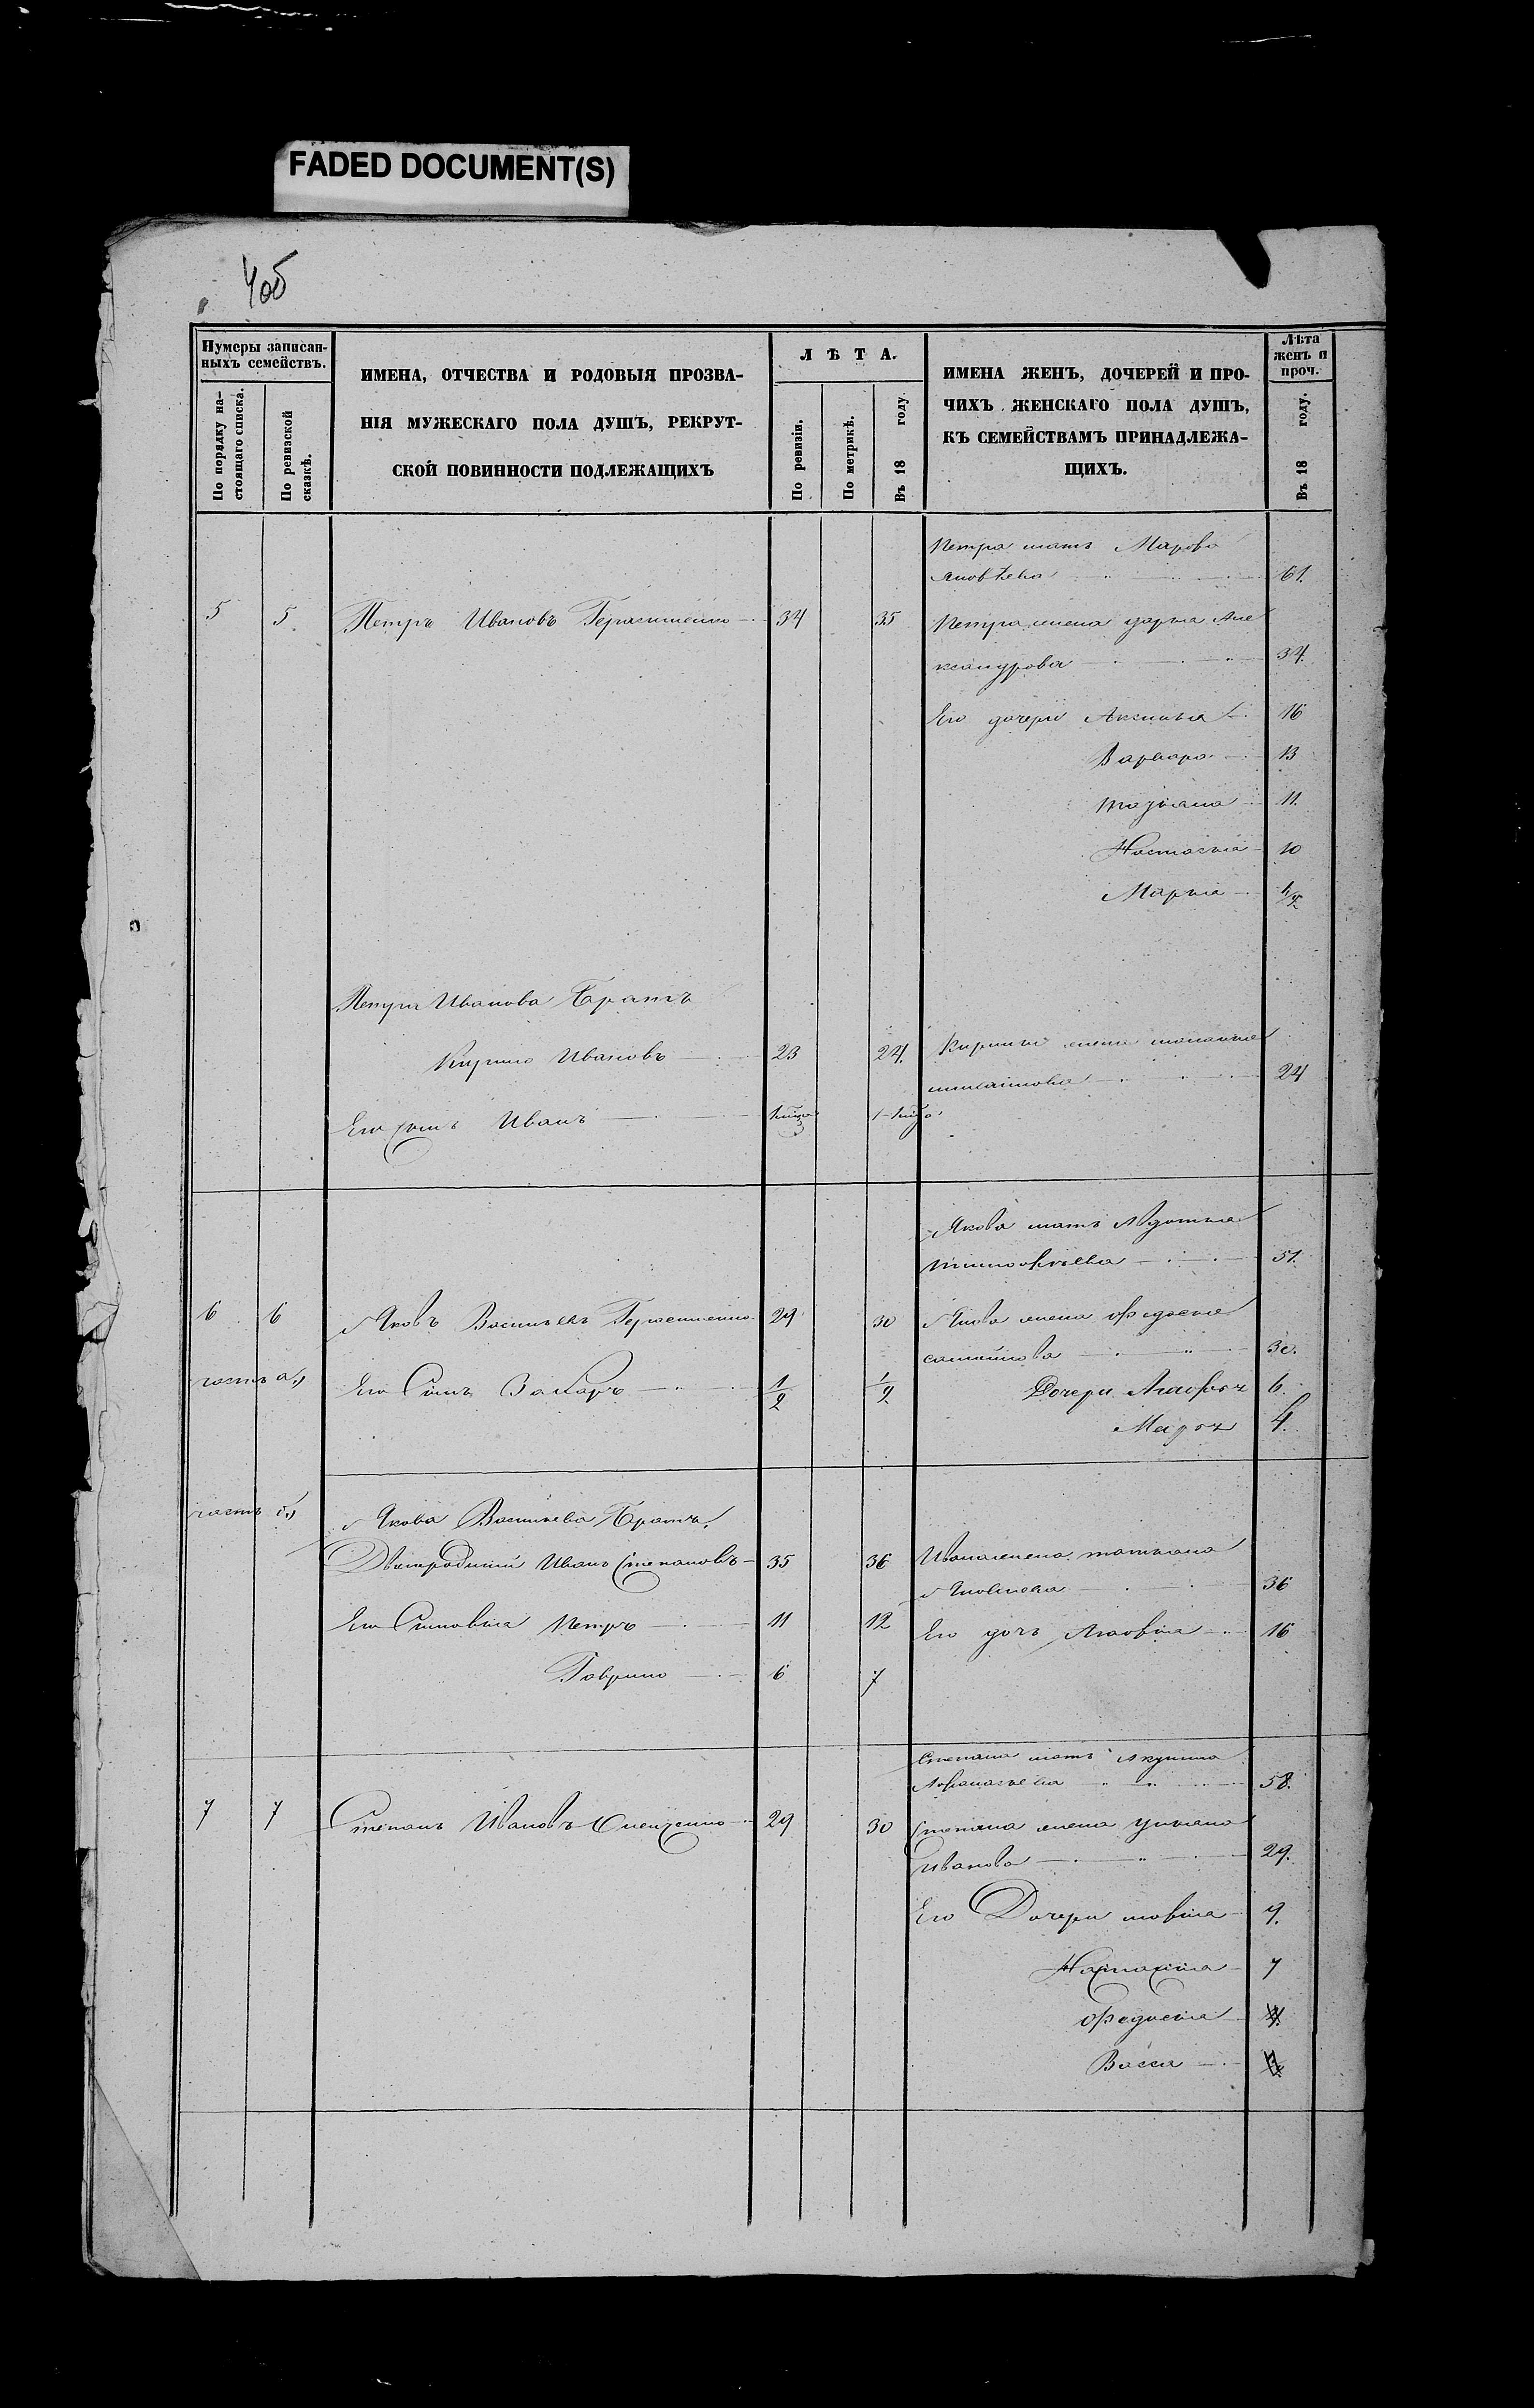 FADED DOCUMENT(S)
4об
Нумеры записан-
ныхъ семействъ.
По порядку на-
стоящаго списка.
По ревизской
сказкѣ.
ИМЕНА, ОТЧЕСТВА И РОДОВЫЯ ПРОЗВА-
НІЯ МУЖЕСКАГО ПОЛА ДУШЪ, РЕКРУТ-
СКОЙ ПОВИННОСТИ ПОДЛЕЖАЩИХЪ
ЛѢТА.
По ревизіи.
По метрикѣ.
Въ 18 году.
ИМЕНА ЖЕНЪ, ДОЧЕРЕЙ И ПРО-
ЧИХЪ ЖЕНСКАГО ПОЛА ДУШЪ,
КЪ СЕМЕЙСТВАМЪ ПРИНАДЛЕЖА-
ЩИХЪ.
Лѣта
женъ и
проч.
Въ 18 году.
Петра мать Марфа
Яковлева 61.
5 5 Петръ Ивановъ Герасименко 34 35 Петра жена дарья Але
ксандрова 34.
Его дочери Аксинья 16
Варвара 13
татьяна 11.
Настасья 10
Марья 1/2
Петра Иванова Братъ
Кирило Ивановъ 23 24 Кирилы жена маланья
24
Его сынъ Иванъ
Якова мать Авдотья
тимофѣева 51.
6 6 Яковъ Васильевъ Герасименко 29 30 Якова жена федосья
30.
часть а) Его Сынъ Захаръ 1/2 1/2 Дочери Агафья 6.
Марья 4.
часть б) Якова Васильева Братъ
Двоюродный Иванъ Степановъ 35 36 Ивана жена татьяна
Яковлева 36
Его Сыновья Петръ 11 12 Его дочь Агафья 16
Гаврило 6 7
Степана мать Акулина
Афанасьева 58.
7 7 Степанъ Ивановъ 29 30 Степана жена ульяна
иванова 29.
Его Дочери 9.
Настасья 7
федосья
Васса